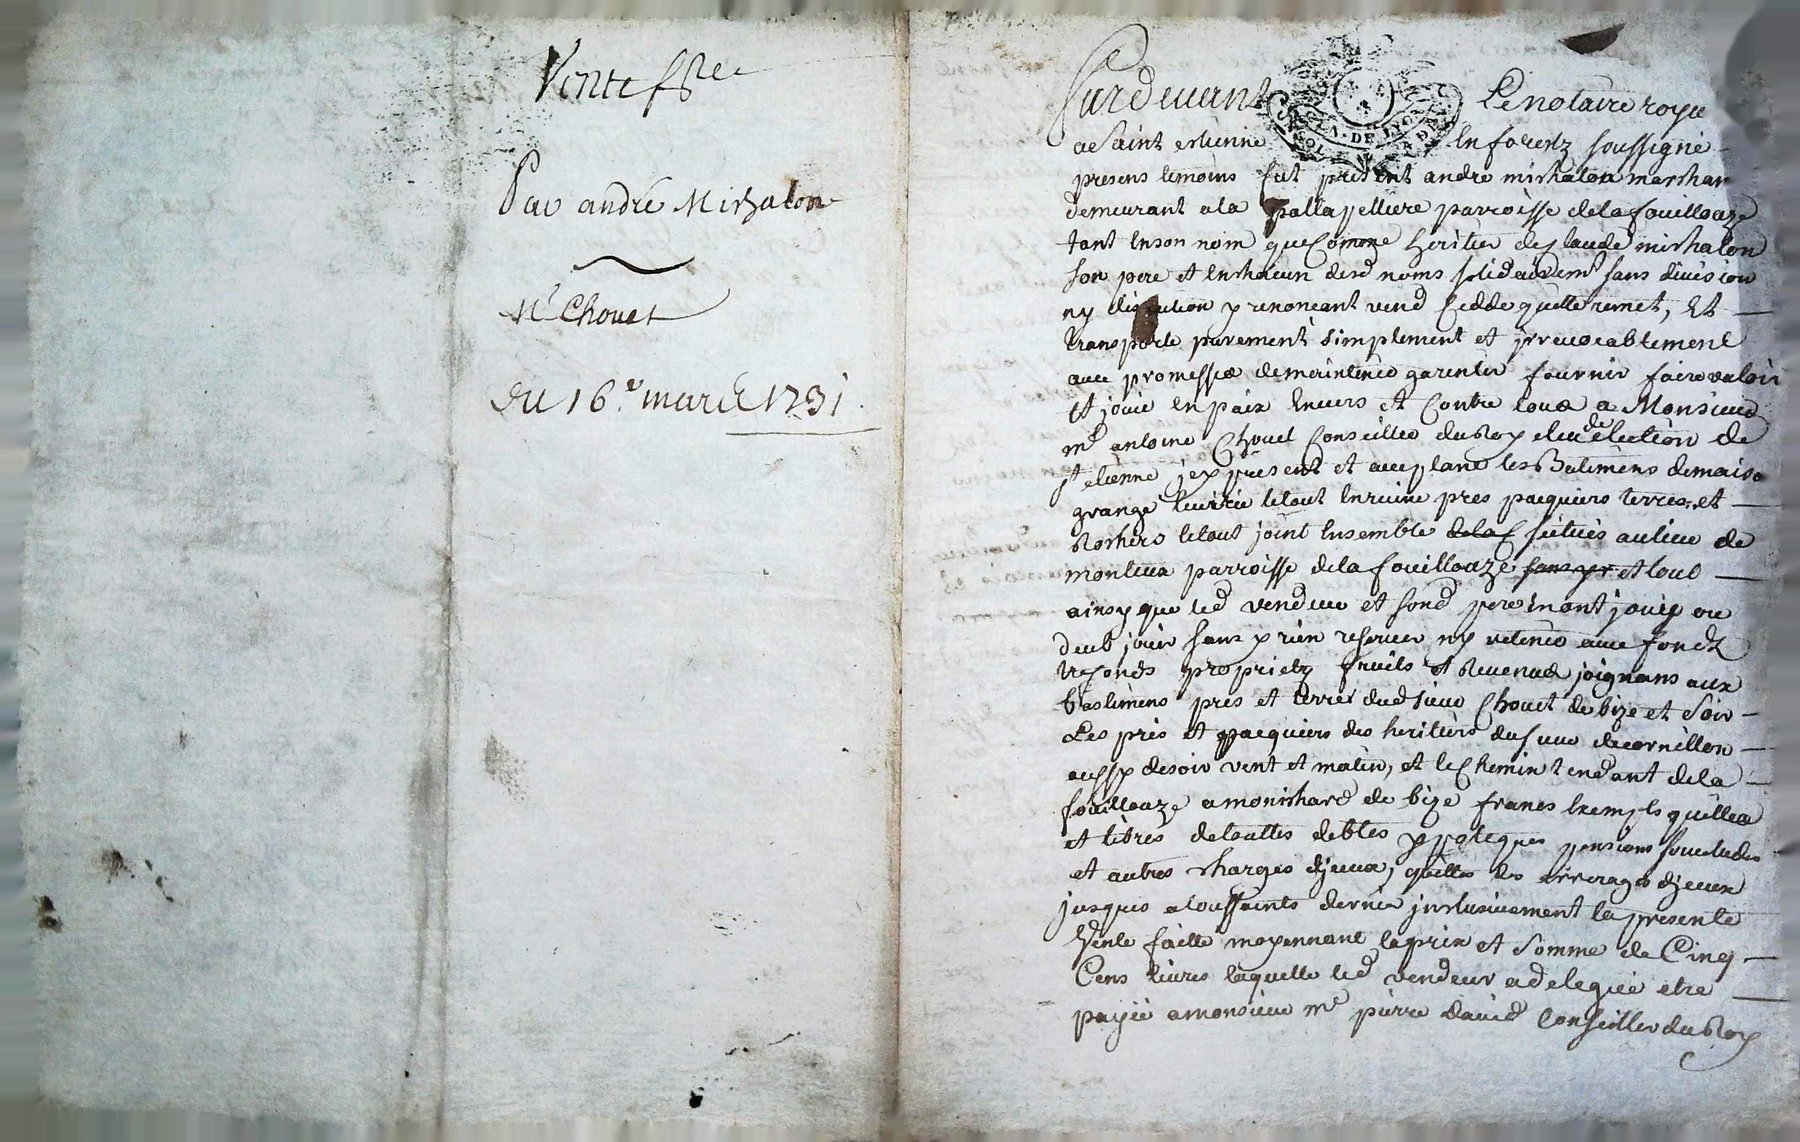 Vente
Par andré Michalon
Mr Chovet
Du 16e mars 1731
Pardevant Le notaire royal
a Saint estienne En forestz soussigné
presens temoins fut present andré michalon marchan
demeurant a la parroisse de la fouillouze
tant En son nom que Comme heritier de Claude michalon
son pere et En chacun desd noms solidairemt sans division
ny discution y renonceant vend cedde quitte remet, Et
transporte purement simplement et jrrevocablement
avec promesse de maintenir garentir fournir faire valoir
et jouir En paix Envers et Contre tous a Monsieur
me antoine Chovet Conseiller du Roy eleu de élection de
st etienne jcy présent et acceptant les Batimens de maison
grange Ecurie le tout En ruine prés pacquiers terres et
Rochers le tout joint Ensemble situés au lieu de
parroisse de la fouillouze et tout
ainsy que led vendeur et sond pere en ont jouÿ ou
deub jouir sans y rien reserver ny retenir avec fonds
tresfonds propriety fruits et Revenus joignans aux
bastimens prés et terres dud sieur Chovet de bize et soir
Les prés et pacquiers des heritiers du sieur decornillon
aussy de soir vent et matin, et le Chemin tendant de la
fouillouze a monichard de bize francs Exempts quittes
et libres de touttes debtes ypoteques pensions servitudes
et autres charges djceux, quittes des arrerages djceux
jusques a toussaints dernier jnclusivement la presente
Vente faitte moyennant le prix et somme de Cinq
Cens livres laquelle led vendeur a delegueé etre
payée a monsieur me pierre david Conseiller du Roy